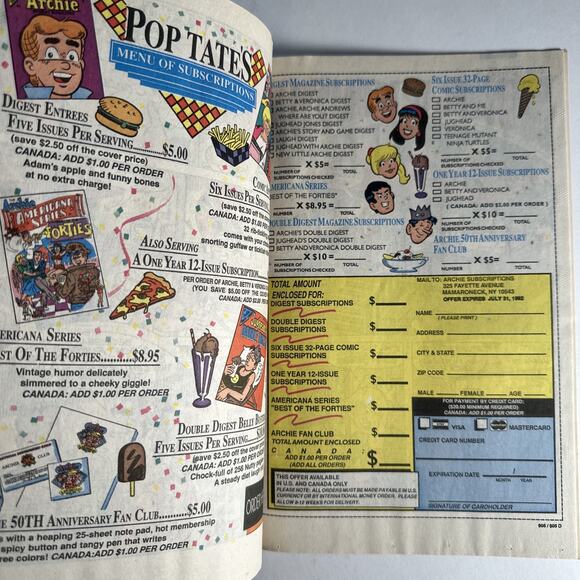 Archie
POP TATE'S
MENU OF SUBSCRIPTIONS
DIGEST ENTREES
FIVE ISSUES PER SERVING....$5.00
(save $2.50 off the cover price)
CANADA: ADD $1.00 PER ORDER
Adam's apple and funny bones
at no extra charge!
AMERICANA SERIES
FORTIES
SIX ISSUES PER
(save $2.50 off the
CANADA: ADD $1.00
32 rib-tickl
comes with your
snorting guffaw or tickle
ALSO SERVING
A ONE YEAR 12-ISSUE SUBSCRIPTION
PER ORDER OF ARCHIE, BETTY &
(YOU SAVE $5.00 OFF THE CO
CANADA: ADD
ERICANA SERIES
ST OF THE FORTIES..........$8.95
Vintage humor delicately
simmered to a cheeky giggle!
CANADA: ADD $1.00 PER ORDER
DOUBLE DIGEST BELLY
FIVE ISSUES PER SERVING
(save $2.50 off the cover
CANADA: ADD $1.00 PER
Chock-full of 256 Nutty page
A steady diet
ARCHIE CLUB
E 50TH ANNIVERSARY FAN CLUB..........$5.00
s with a heaping 25-sheet note pad, hot membership
spicy button and tangy pen that writes
ree colors! CANADA: ADD $1.00 PER ORDER
ORDER
GEST MAGAZINE SUBSCRIPTIONS
ARCHIE DIGEST
BETTY &VERONICA DIGEST
ARCHIE, ARCHIE ANDREWS
WHERE ARE YOU? DIGEST
JUGHEAD JONES DIGEST
ARCHIE'S STORY AND GAME DIGEST
LAUGH DIGEST
JUGHEAD WITH ARCHIE DIGEST
NEW LITTLE ARCHIE DIGEST
X $5=
NUMBER OF SUBSCRIPTIONS CHECKED
TOTAL
MERICANA SERIES
"BEST OF THE FORTIES"
X $8.95=
NUMBER OF SUBSCRIPTIONS
TOTAL
DOUBLE DIGEST MAGAZINE SUBSCRIPTIONS
ARCHIE'S DOUBLE DIGEST
JUGHEAD'S DOUBLE DIGEST
BETTY AND VERONICA DOUBLE DIGEST
X $10=
NUMBER OF SUBSCRIPTIONS CHECKED
TOTAL
SIX ISSUE 32-PAGE
COMIC SUBSCRIPTIONS
ARCHIE
BETTY AND ME
BETTY AND VERONICA
JUGHEAD
VERONICA
TEENAGE MUTANT
NINJA TURTLES
X $5=
NUMBER OF SUBSCRIPTIONS CHECKED
TOTAL
ONE YEAR 12-ISSUE SUBSCRIPTIONS
ARCHIE
BETTY AND VERONICA
JUGHEAD
( CANADA: ADD $2.00 PER ORDER)
X $10=
NUMBER OF SUBSCRIPTIONS CHECKED
TOTAL
ARCHIE 50TH ANNIVERSARY
FAN CLUB
X $5=
NUMBER OF SUBSCRIPTIONS CHECKED
TOTAL
TOTAL AMOUNT
ENCLOSED FOR:
DIGEST SUBSCRIPTIONS $
DOUBLE DIGEST
SUBSCRIPTIONS $
SIX ISSUE 32-PAGE COMIC
SUBSCRIPTIONS $
ONE YEAR 12-ISSUE
SUBSCRIPTIONS $
AMERICANA SERIES
"BEST OF THE FORTIES" $
ARCHIE FAN CLUB $
TOTAL AMOUNT ENCLOSED
CANADA:
ADD $1.00 PER ORDER
(ADD ALL ORDERS) $
THIS OFFER AVAILABLE
IN U.S. AND CANADA ONLY
PLEASE NOTE: ALL ORDERS MUST BE MADE PAYABLE IN U.S.
CURRENCY OR BY INTERNATIONAL MONEY ORDER. PLEASE
ALLOW 8-12 WEEKS FOR DELIVERY.
MAIL TO: ARCHIE SUBSCRIPTIONS
325 FAYETTE AVENUE
MAMARONECK, NY 10543
OFFER EXPIRES JULY 31, 1992
NAME
( PLEASE PRINT )
ADDRESS
CITY & STATE
ZIP CODE
MALE FEMALE AGE
FOR PAYMENT BY CREDIT CARD:
($20.00 MINIMUM REQUIRED)
CANADA: ADD $1.00 PER ORDER
VISA MASTERCARD
CREDIT CARD NUMBER
EXPIRATION DATE /
MONTH YEAR
SIGNATURE OF CARDHOLDER